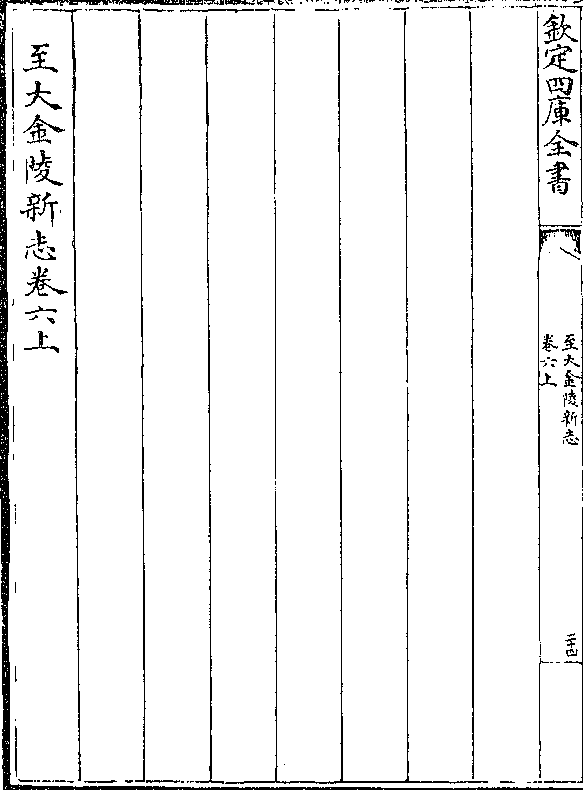 欽定四庫全書
至大金陵新志
卷六上
二十四
至大金陵新志卷六上